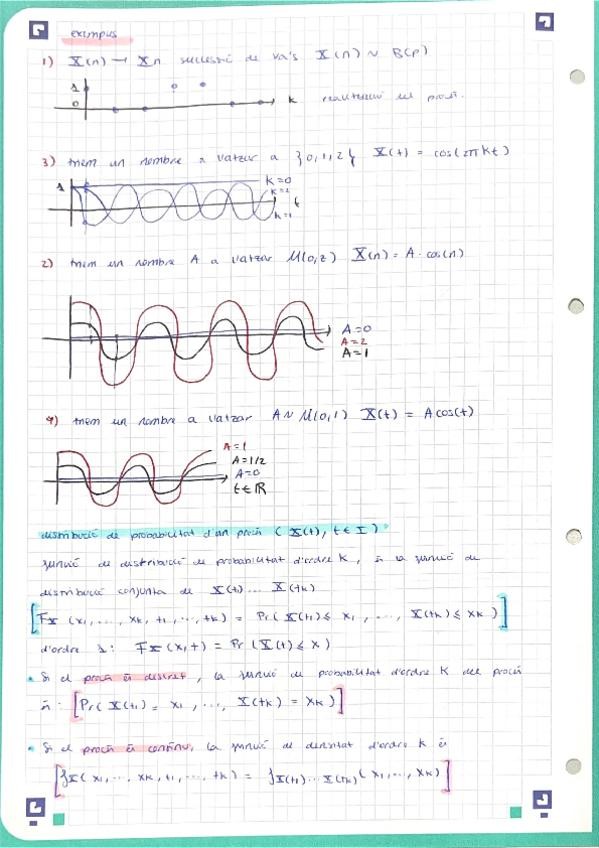 exemples
1) X(n) → Xn successió de va's X(n) ~ B(p)
1
0
k
realització del procés.
3) triem un nombre a l'atzar a {0,1,2} X(t) = cos(2πkt)
1
k=0
k=2
t
k=1
2) triem un nombre A a l'atzar U(0,2) X(n) = A · cos(n)
A=0
A=2
A=1
4) triem un nombre a l'atzar A ~ U(0,1) X(t) = A cos(t)
A=1
A=1/2
A=0
t∈ℝ
distribució de probabilitat d'un procés (X(t), t ∈ I)
funció de distribució de probabilitat d'ordre K, és la funció de
distribució conjunta de X(t1) ... X(tk)
[F_X (x1, ..., xk, t1, ..., tk) = Pr(X(t1) ≤ x1, ..., X(tk) ≤ xk)]
d'ordre 1: F_X(x,t) = Pr(X(t) ≤ x)
• Si el procés és discret, la funció de probabilitat d'ordre K del procés
és: [Pr(X(t1) = x1, ..., X(tk) = xk)]
• Si el procés és continu, la funció de densitat d'ordre K és
[f_X(x1, ..., xk, t1, ..., tk) = f_X(t1)...X(tk) (x1, ..., xk)]